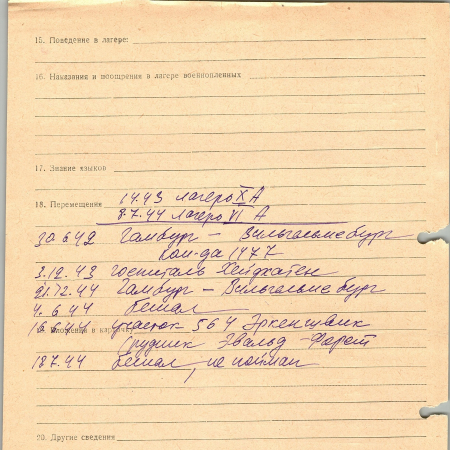 15. Поведение в лагере:
16. Наказания и поощрения в лагере военнопленных
17. Знание языков
18. Перемещения 1.4.43 лагерь X А
8.7.44 лагерь VI А
30.6.42 Гамбург – Вильгельмсбург
ком-да 1477
3.12.43 госпиталь Хейдкатен
Гамбург – Вильгельмсбург
4.6.44 бежал
участок 564 Эркеншвик
рудник Эвальд-
18.7.44 бежал, не пойман
20. Другие сведения